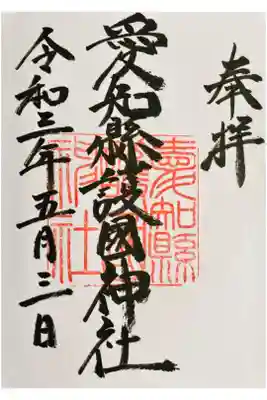 奉拝
愛知縣護國神社
令和三年五月三日
愛知縣護國神社